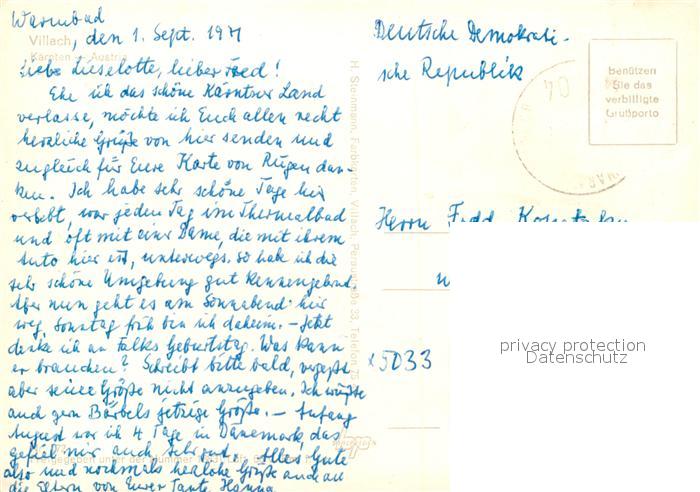 Warmbad
Villach, den 1. Sept. 1971
Kärnten — Austria
Liebe Lieselotte, lieber
Ehe ich das schöne Kärntner Land
verlasse, möchte ich Euch allen recht
herzliche Grüße von hier senden und
zugleich für Eure Karte von Rügen dan-
ken. Ich habe sehr schöne Tage hier
verlebt, war jeden Tag im Thermalbad
und oft mit einer Dame, die mit ihrem
Auto hier ist, unterwegs. So hab ich die
sehr schöne Umgebung gut kennengelernt.
Aber nun geht es am Sonnabend hier
weg, Sonntag früh bin ich daheim. — Jetzt
denke ich an Falks Geburtstag. Was kann
er brauchen? Schreibt bitte bald, vergeßt
aber seine Größe nicht anzugeben. Ich wüßte
auch gern Bärbels jetzige Größe. — Anfang
August war ich 4 Tage in Dänemark, das
gefiel mir auch sehr gut. Alles Gute
also und nochmals herzliche Grüße auch an
die Eltern von Eurer Tante Hanna
H. Steinmann, Farbkarten, Villach, Peraustraße 33, Telefon
Deutsche Demokrati-
sche Republik
Benützen
Sie das
verbilligte
Grußporto
Herrn
x5033
privacy protection
Datenschutz